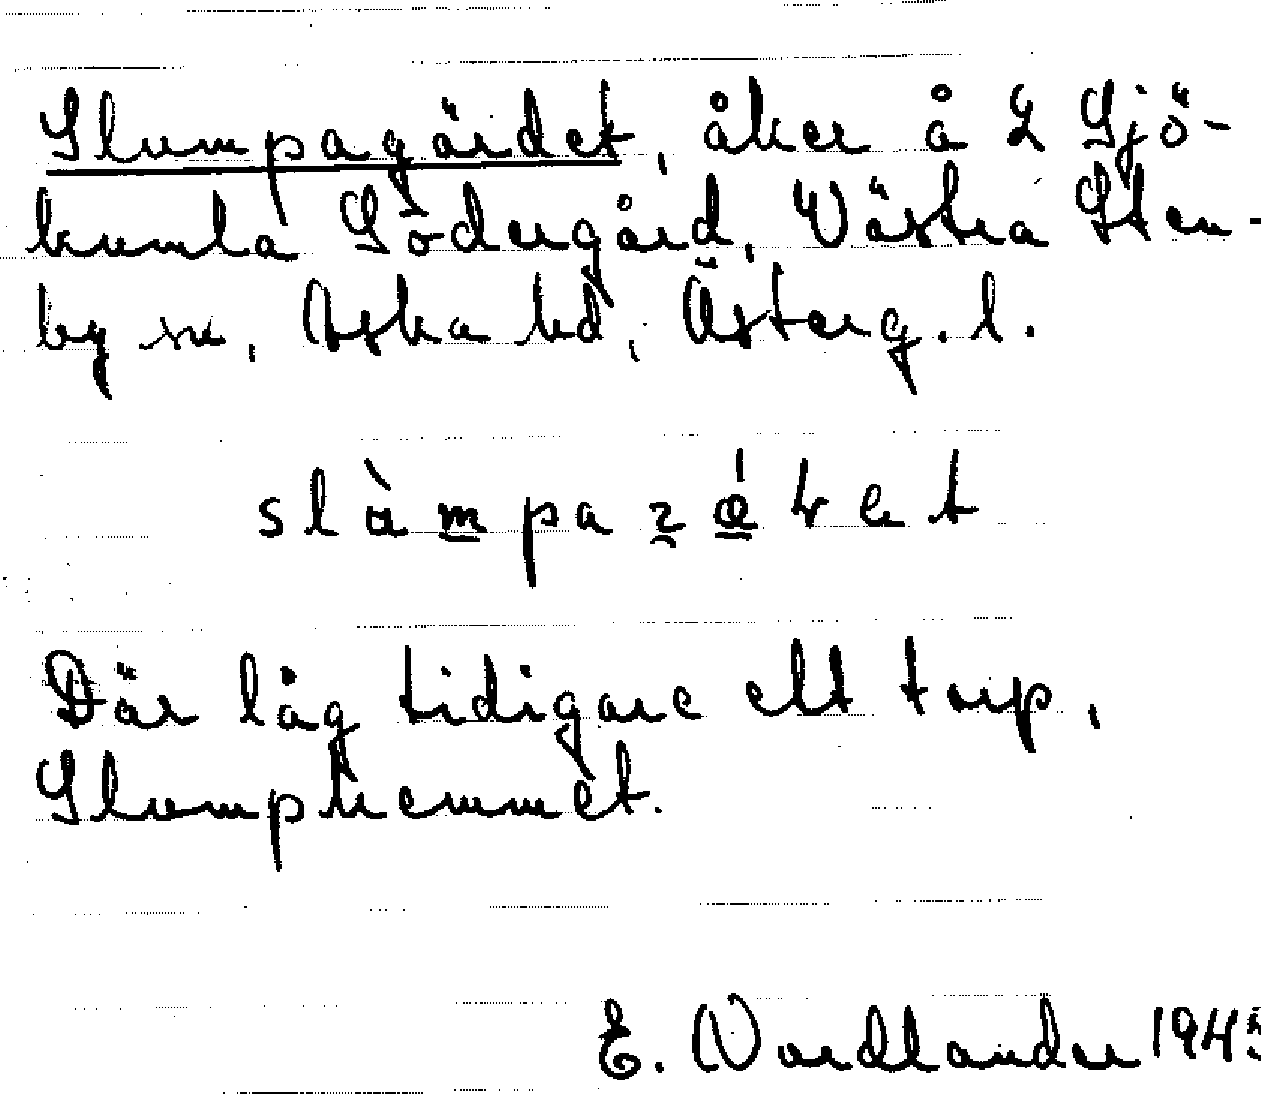 Slumpagärdet, åker å 2 Sjö-
kumla Södergård, Västra Sten-
by sn, Aska hd, Österg. l.
Där låg tidigare ett torp,
Slumphemmet.
E. Nordlander 1945